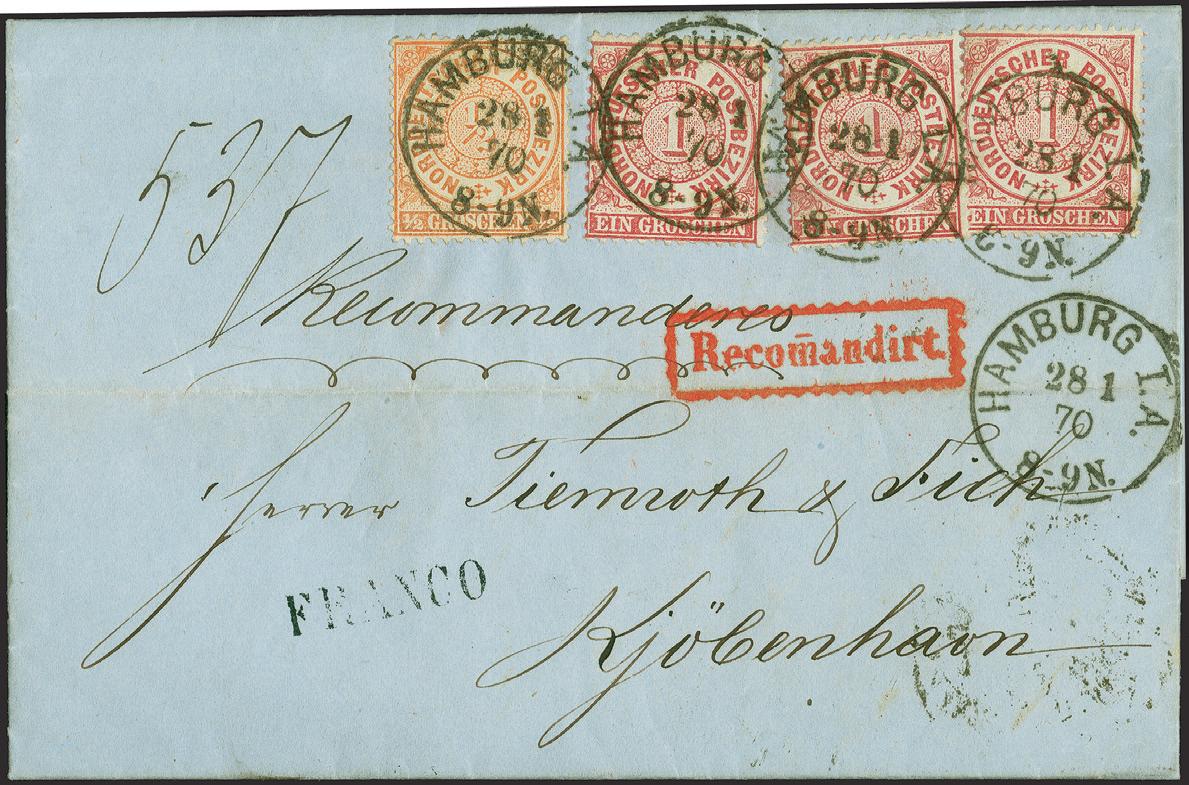 HAMBURG I.A. 28 1 70 8-9N.
NORDDEUTSCHER POSTBEZIRK
1/2
1/2 GROSCHEN
HAMBURG I.A. 28 1 70 8-9N.
NORDDEUTSCHER POSTBEZIRK
1
EIN GROSCHEN
HAMBURG I.A. 28 1 70 8-9N.
NORDDEUTSCHER POSTBEZIRK
1
EIN GROSCHEN
HAMBURG I.A. 28 1 70 8-9N.
NORDDEUTSCHER POSTBEZIRK
1
EIN GROSCHEN
537
Recommanderes
Recom̄andirt.
HAMBURG I.A.
28 1
70
8-9N.
Herrer Tiemroth & Fich
FRANCO
Kjöbenhavn